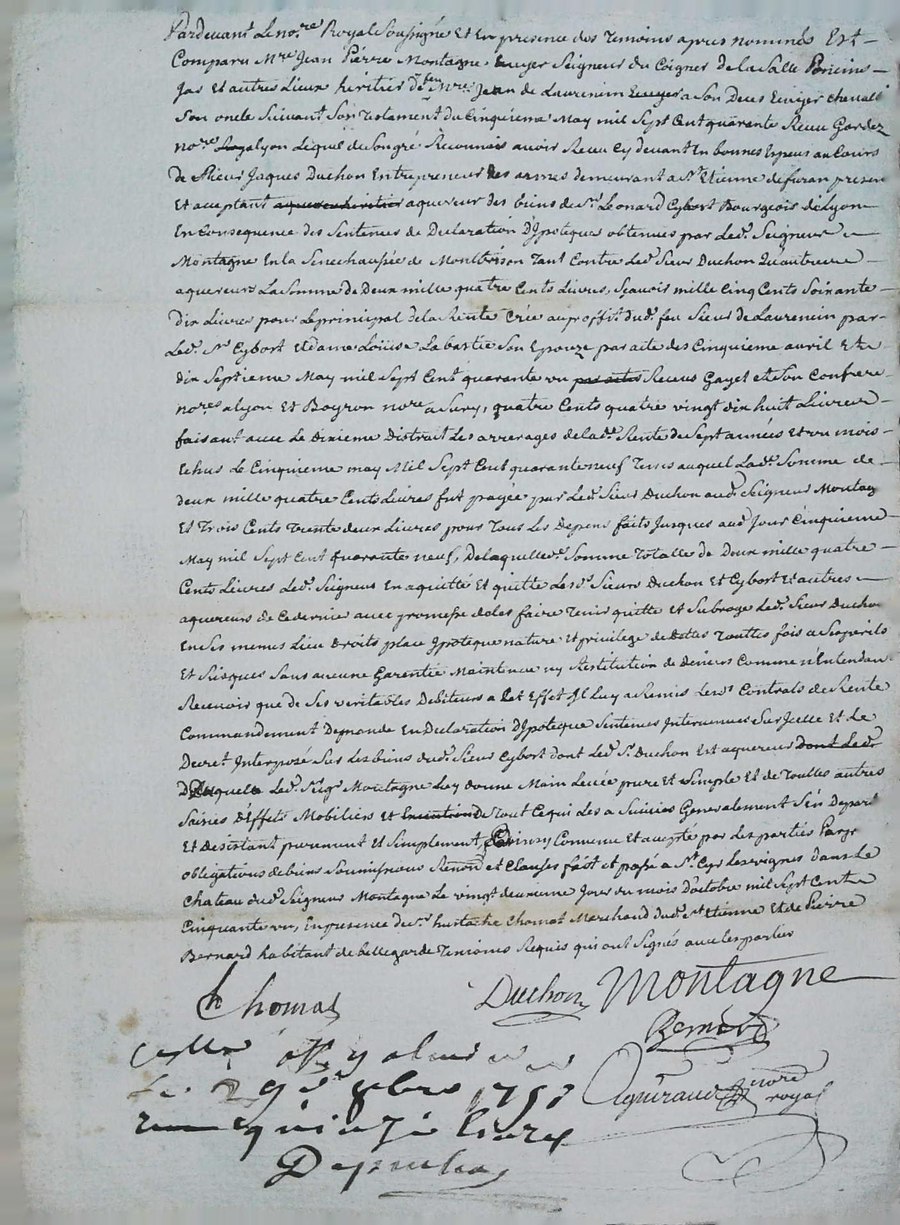 Pardevant le no.re Royal Soussigné Et En presence des Temoins apres nommés Est
Comparu M.re Jean Pierre Montagne Ecuyer Seigneur du Coigner de la Salle Poncins
Jas et autres Lieux heritier de feu M.re Jean de Laurencin Ecuyer a Son Deces Ecuyer chevalr
Son oncle Suivant Son Testament du Cinquieme May mil Sept Cent quarante Recu Gardez
no.re a Lyon Lequel du Son gré Reconnais avoir Recu Cy devant En bonnes Especes au Cours
De Sieur Jaques Duchon Entrepreneur des armes demeurant a St Etienne de furan present
Et aceptant aquereur des biens de Sr Leonard Cybort Bourgeois de Lyon
En Consequence des Sentences de Declaration D'Ipoteque obtenues par led. Seigneur
Montagne En la Senechaussée de Montbrison Tant Contre led. Sieur Duchon qu'autres
aquereurs La Somme de Deux mille quatre Cents Livres, Sçavoir mille Cinq Cents Soixante
dix Livres pour le principal de la Rente Crée au proffit dud. feu Sieur de Laurencin par
led. Sr Cybort et dame Loüise Labastie Son Epouze par acte des Cinquieme avril Et
dix Septieme May mil Sept Cent quarante un Recus Gayet et Son Confrere
no.res a Lyon Et Boyron no.re a Sury, quatre Cents quatre vingt dix huit Livres
faisant avec le dixieme Distrait Les arrerages de lad. Rente de Sept années Et un mois
Echus le Cinquieme may Mil Sept Cent quarante neuf Tems auquel lad. Somme de
deux mille quatre Cents Livres fut payée par led. Sieur Duchon aud. Seigneur Montagne
Et Trois Cents Trente deux Livres pour Tous les Depens faits Jusques aud. Jour Cinquieme
May mil Sept Cent quarante neuf, De laquelle Somme Totalle de Deux mille quatre
Cents Livres led. Seigneur En a quitté Et quitte lesd. Sieurs Duchon Et Cybort Et autres
aquereurs de Ce dernier avec promesse de les faire Tenir quitte Et Subroge led. Sieur Duchon
En Ses memes Lieu Droits place Ipoteque nature Et privilege de dettes Touttes fois a Ses perils
Et Risques Sans aucune Garentie Maintenue ny Restitution de deniers Comme n'Entendant
Recevoir que de Ses veritables Debiteurs a Cet Effet Il luy a Remis lesd. Contrats de Rente
Commandement Demande En Declaration D'Ipoteque Sentences Intervenues Sur Icelle Et le
Decret Interposé Sur les biens dud. Sieur Cybort dont led. Sr Duchon Est aquereur dont led.
Duquel led. Seigr Montagne Luy donne Main Levée pure et Simple Et de Touttes autres
Saisies D'Effets Mobiliers Et de Tout Ce qui les a Suivies Generalement S'en Depart
Et desistant purement et Simplement, Ainsy Convenu Et accepté par les parties
obligations de biens Soumissions Renond et Clauses fait et passé a St Cyr Les vignes dans Le
Chateau dud. Seigneur Montagne Le vingt deuxieme Jour du mois D'octobre mil Sept Cent
Cinquante un, En presence de Sr Eustache Chomat Marchand dud. St Etienne Et de Pierre
Bernard habitant de bellegarde Temoins Requis qui ont Signés avec les parties
Chomat
Duchon Montagne
Bernard
nore
royal
29
quinze livres